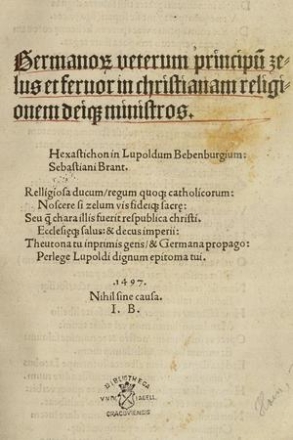 Germanoꝝ veterum principũ ze-
lus et feruor in christianam religi-
onem deiqꝫ ministros.
Hexastichon in Lupoldum Bebenburgium:
Sebastiani Brant.
Relligiosa ducum/regum quoqꝫ catholicorum:
Noscere si zelum vis fideiqꝫ sacrę:
Seu ꝙ̃ chara illis fuerit respublica christi.
Ecclesięqꝫ salus: & decus imperii:
Theutona tu inprimis gens/& Germana propago:
Perlege Lupoldi dignum epitoma tui.
.1497.
Nihil sine causa.
I. B.
BIBLIOTHECA
CRACOVIENSIS